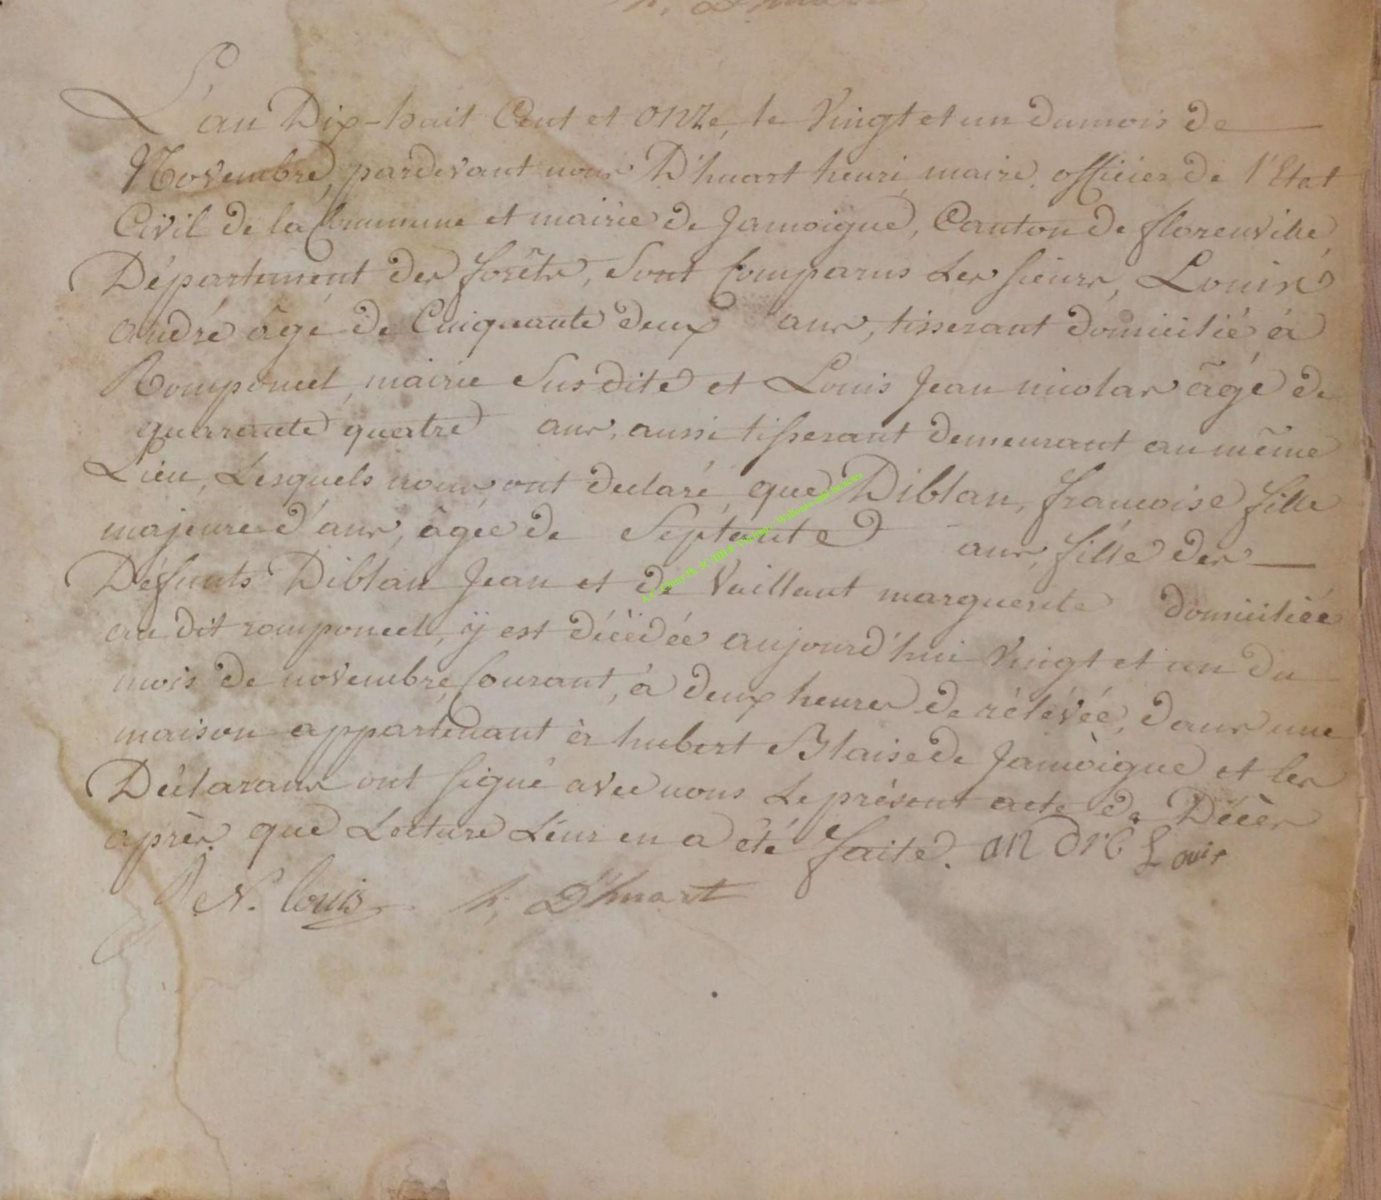 h. D'huart
L'an Dix-huit Cent et onze, le Vingt et un du mois de
Novembre, pardevant nous D'huart henri, maire, officier de l'Etat
Civil de la Commune et mairie de Jamoigne, Canton de florenville,
Département des forêts, sont Comparus Les sieurs, Louis
andré âgé de Cinquante deux ans, tisserant domicilié à
Romponcel, mairie Susdite et Louis Jean nicolas âgé de
quarrante quatre ans, aussi tisserant demeurant au même
Lieu, Lesquels nous ont declaré, que Diblan, francoise fille
majeure d'ans, âgée de Septante ans, fille des
Défunts Diblan Jean et de Vaillant marguerite domiciliée
au dit romponcel, ÿ est décédée aujourd'hui Vingt et un du
mois de novembre Courant, à deux heures de rélévée, dans une
maison appartenant à hubert Blaise de Jamoigne et les
Déclarans ont signé avec nous Le présent acte de Décès
après que Lecture Leur en a été faite. andré Louis
J N. louis h. D'huart